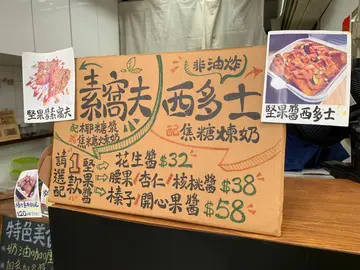 非油炸
素窩夫 西多士
配椰糖漿
配焦糖煉奶
配焦糖煉奶
請選配
1款堅果醬
花生醬$32
腰果/杏仁/核桃醬$38
榛子/開心果醬$58
堅果醬素窩夫
堅果醬西多士
特色美